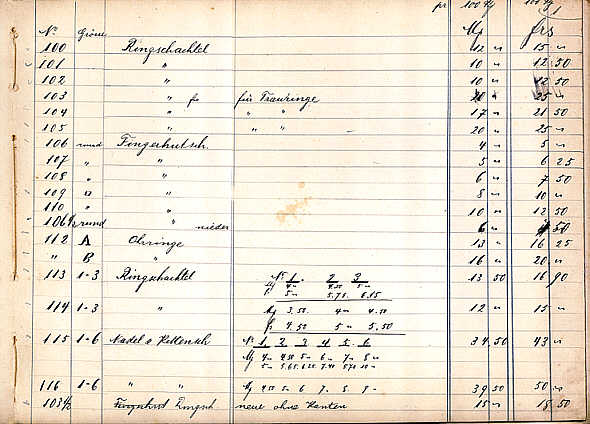 pr 100 Stg 100 Stg 1
No Grösse Mg frs
100 Ringschachtel 12 " 15 "
101 " 10 " 12 50
102 " 10 " 12 50
103 " für Trauringe 20 " 25 "
104 " " " 17 " 21 50
105 " " " 20 " 25 "
106 rund Fingerhutsch. 4 " 5 "
107 " " 5 " 6 25
108 " " 6 " 7 50
109 " " 8 " 10 "
110 " " 10 " 12 50
106½ rund " nieder 6 " 50
112 A Ohrringe 13 " 16 25
" B " 16 " 20 "
113 1-3 Ringschachtel No 1. 2 3 13 50 16 90
4 " 4.50 5 "
5 " 5.75. 6.25
114 1-3 " Mg 3.50. 4 " 4.50 12 " 15 "
frs 4.50 5 " 5.50
115 1-6 Nadel & Kettensch No 1 2 3 4 5. 6 34.50 43 "
Mg 4 " 4.50 5 " 6 " 7 " 8 "
116 1-6 " " Mg 4.50 5 " 6 7. 8 9 " 39 50 50 "
103½ Ringsch neue ohne Kanten 15 " 18 50